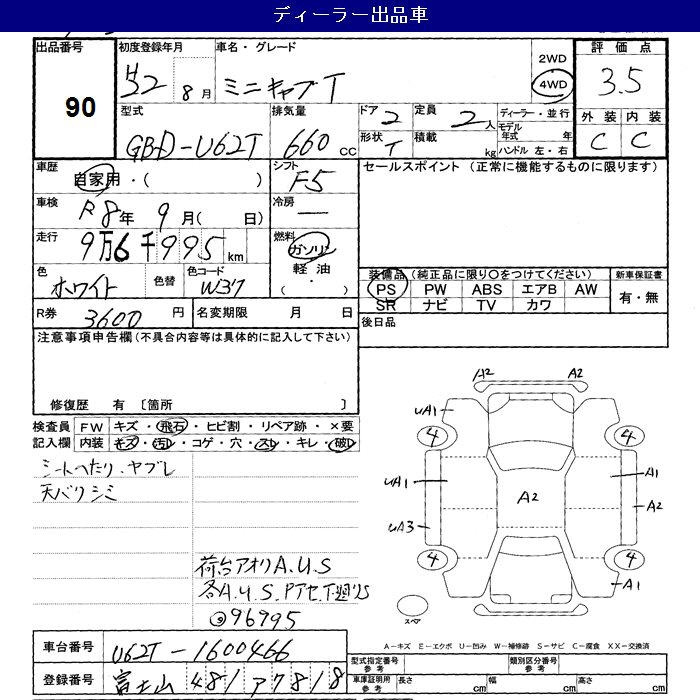 ディーラー出品車
出品番号
90
初度登録年月
H22年 8月
車名・グレード
ミニキャブT
2WD
4WD
評価点
3.5
外装 内装
C C
型式
GBD-U62T
排気量
660cc
ドア
2
定員
2人
形状
T
積載
kg
ディーラー・並行
モデル年式 年
ハンドル 左・右
車歴
自家用・( )
シフト
F5
セールスポイント (正常に機能するものに限ります)
車検
R8年 9月( 日)
冷房
―
走行
9万6千995km
燃料
ガソリン
軽油
( ・ )
色
ホワイト
色替
色コード
W37
装備品(純正品に限り○をつけてください)
PS PW ABS エアB AW
SR ナビ TV カワ
新車保証書
有・無
R券 3600円
名変期限 月 日
後日品
注意事項申告欄(不具合内容等は具体的に記入して下さい)
修復歴 有 〔箇所 〕
検査員記入欄
FW キズ・飛石・ヒビ割・リペア跡・×要
内装 キズ・汚レ・コゲ・穴・スレ・キレ・破レ
シートへたり、ヤブレ
天バリシミ
荷台アオリA.U.S
各A.U.S.
96995
A2 A2
uA1
4 4
uA1 A1
A2
A2
uA3
4 4
A1
スペア
A-キズ E-エクボ U-凹み W-補修跡 S-サビ C-腐食 XX-交換済
車台番号
U62T-1600466
登録番号
富士山 481 ア 7818
型式指定番号 参考
類別区分番号 参考
車庫証明用 参考
長さ cm
幅 cm
高さ cm